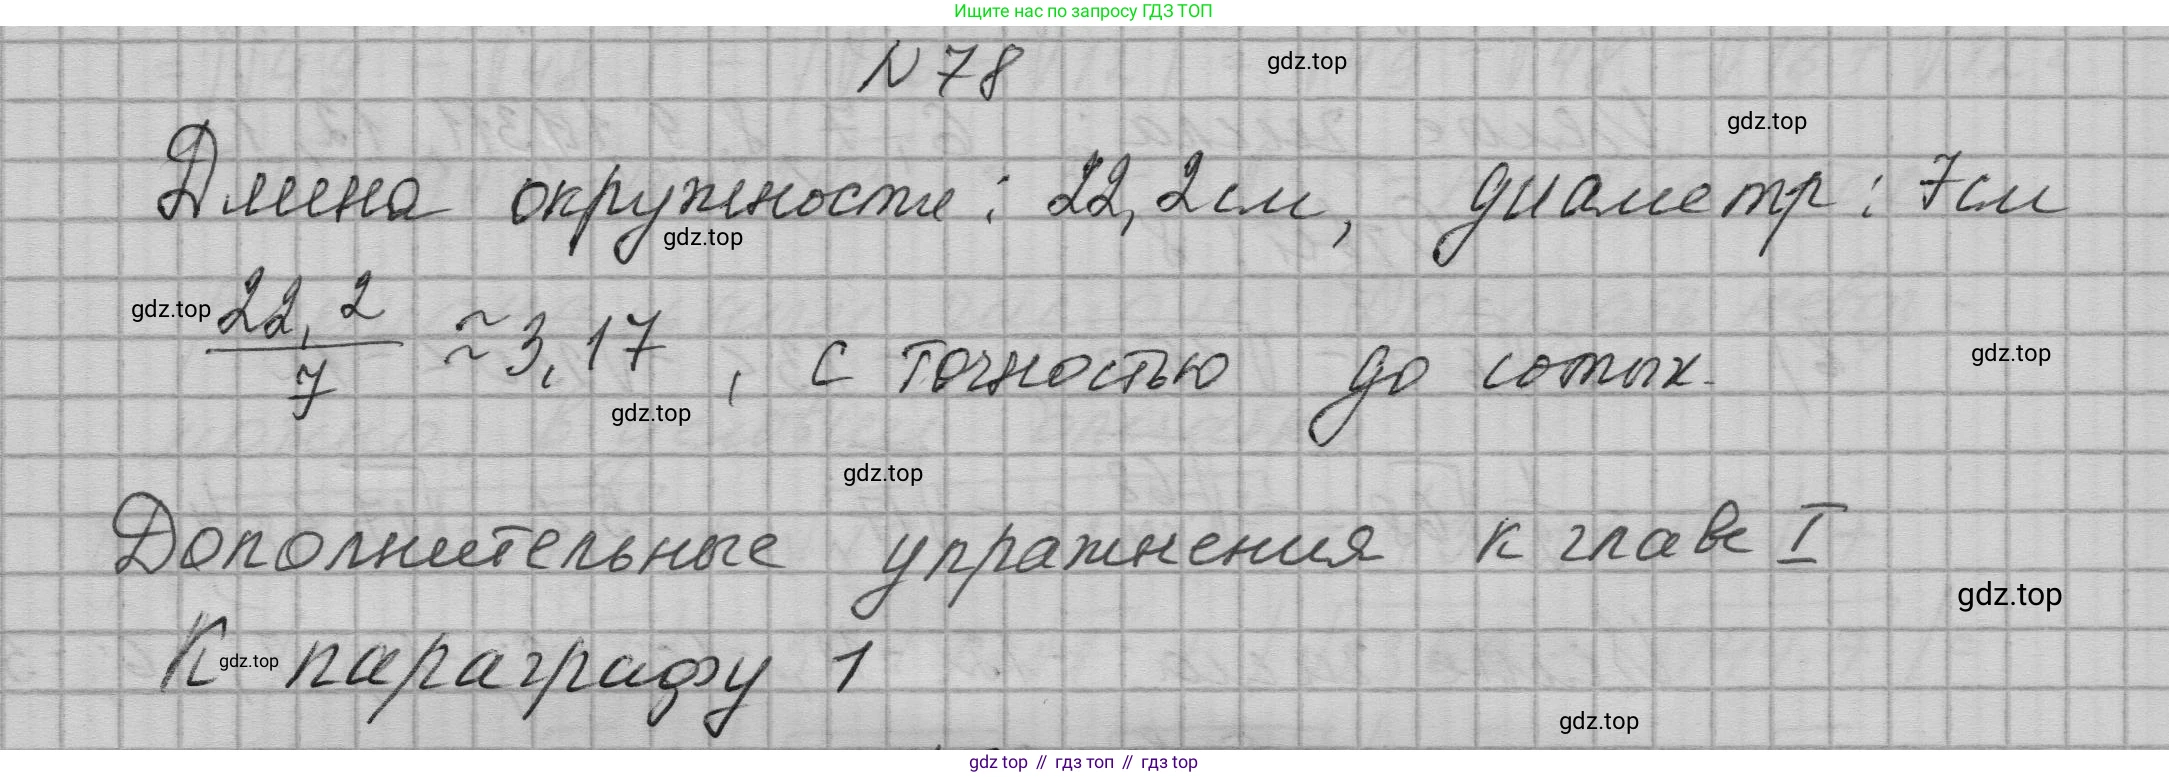 Ищите нас по запросу ГДЗ ТОП
N 78
gdz.top
gdz.top
Длина окружности: 22,2 см, диаметр: 7 см
gdz.top
gdz.top
22,2
7
≈ 3,17, с точностью до сотых.
gdz.top
gdz.top
gdz.top
Дополнительные упражнения к главе I
gdz.top
К параграфу 1
gdz.top
gdz.top
gdz top // гдз топ // гдз top